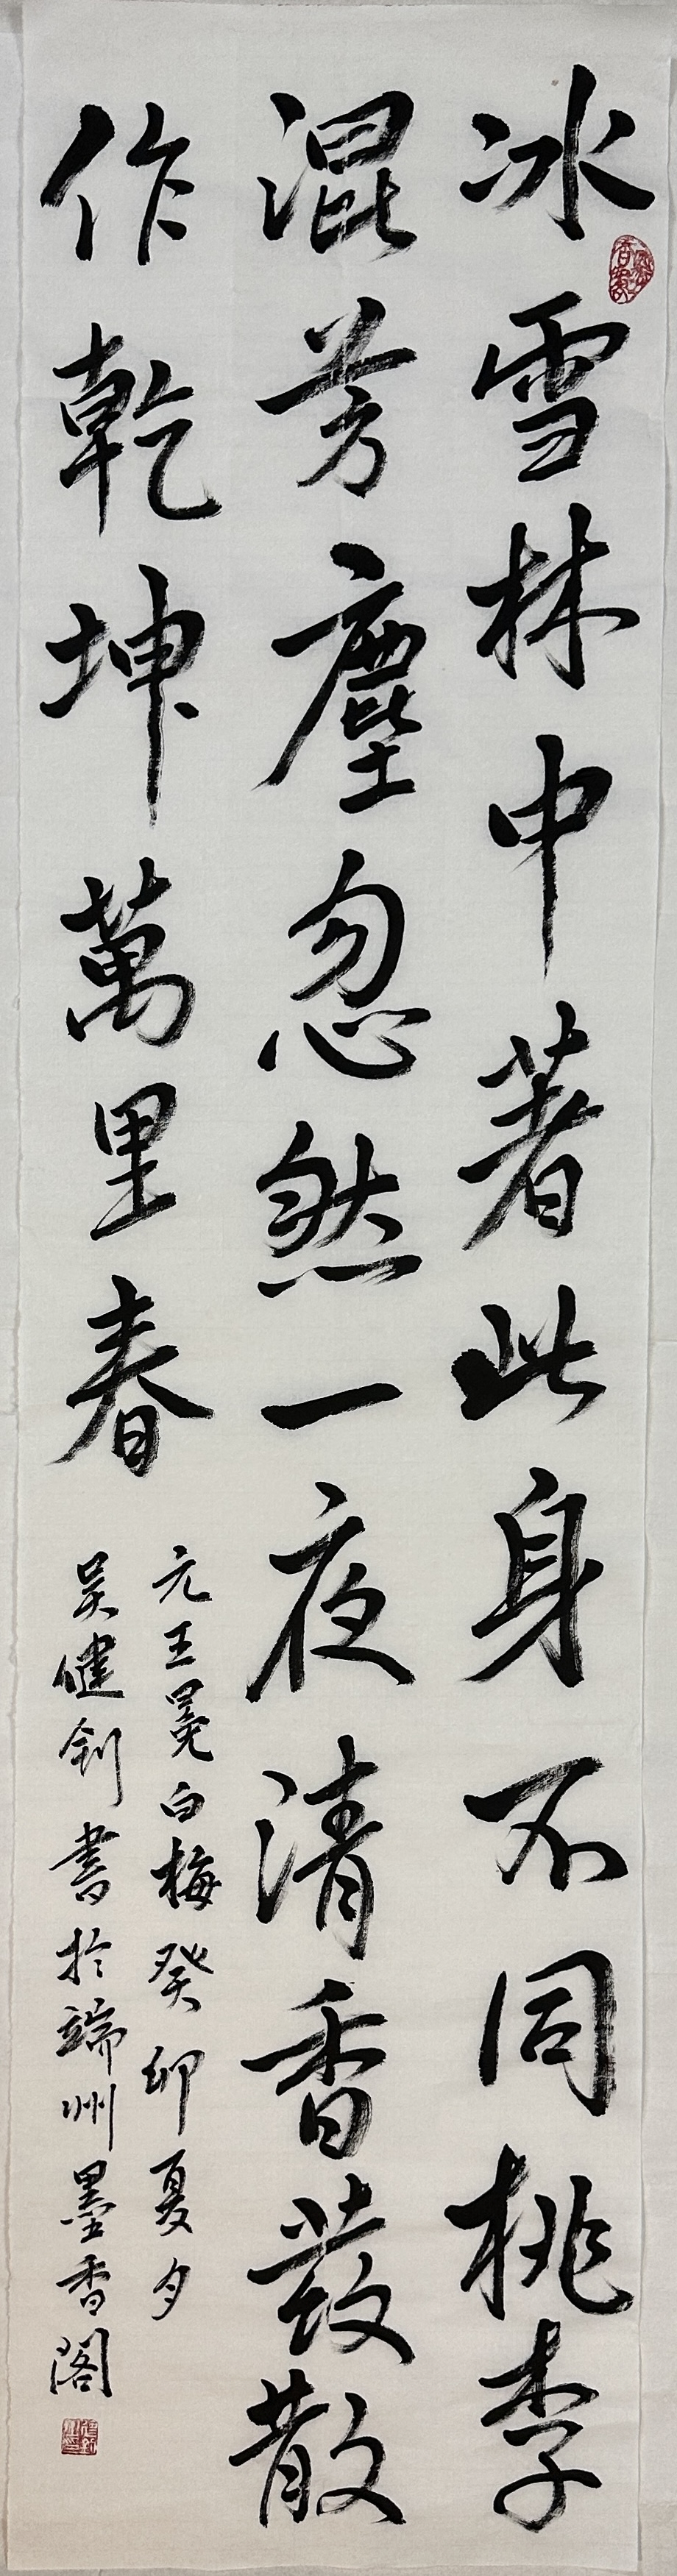 冰雪林中著此身不同桃李
混芳塵忽然一夜清香發散
作乾坤萬里春
元王冕白梅癸卯夏夕
吴健釗書於端州墨香閣